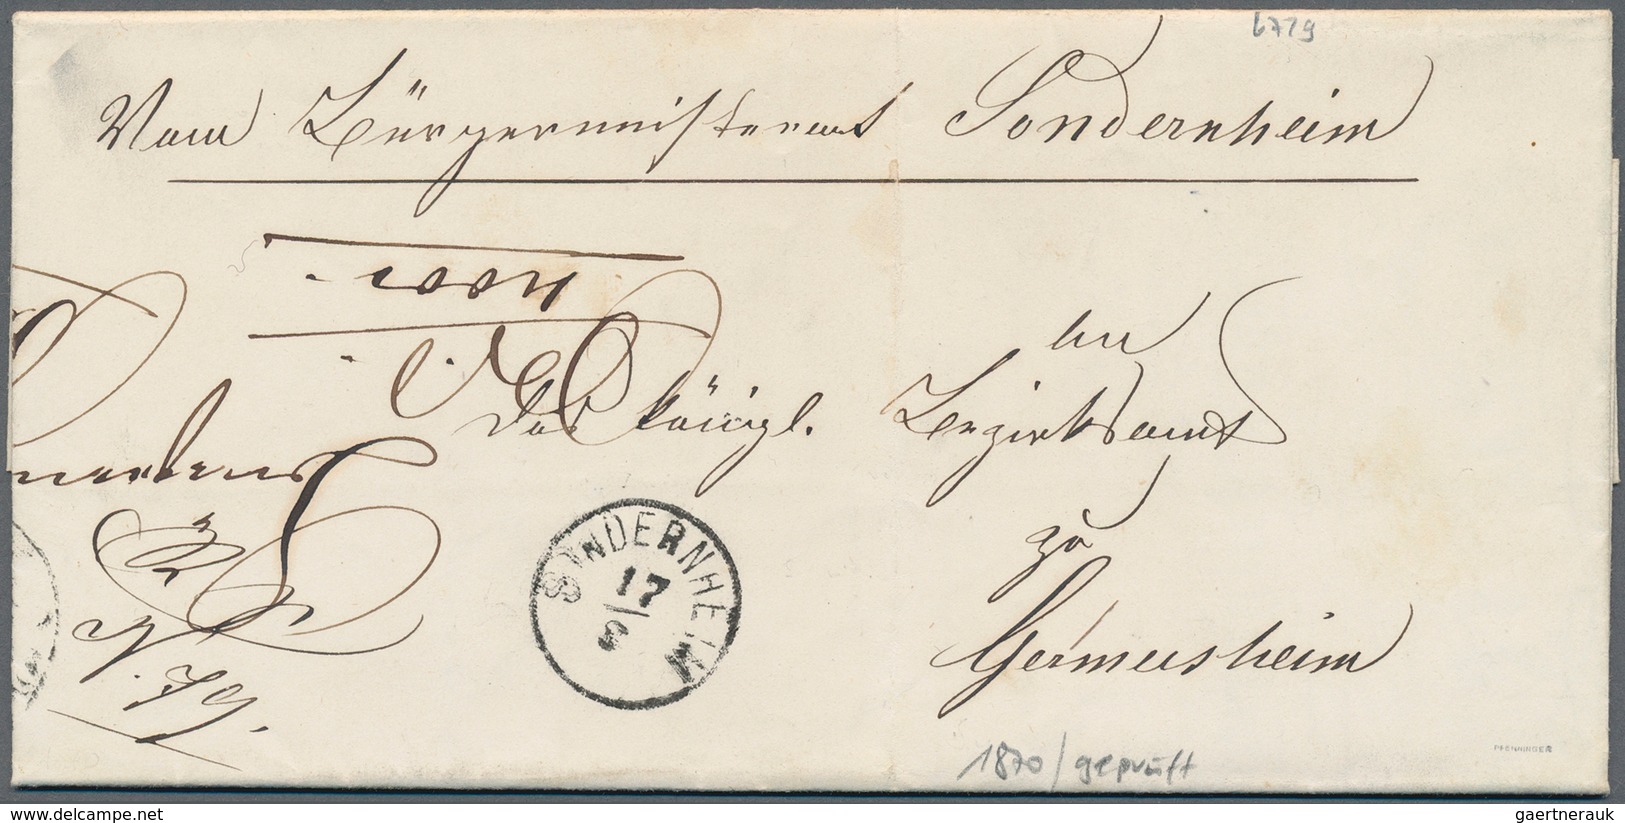 6719
Vom Bürgermeisteramt Sondernheim
An
das königl. Bezirksamt
zu
Germersheim
SONDERNHEIM
17
9
No. 79.
1870/geprüft
PFENNINGER
www.delcampe.net
gaertnerauk